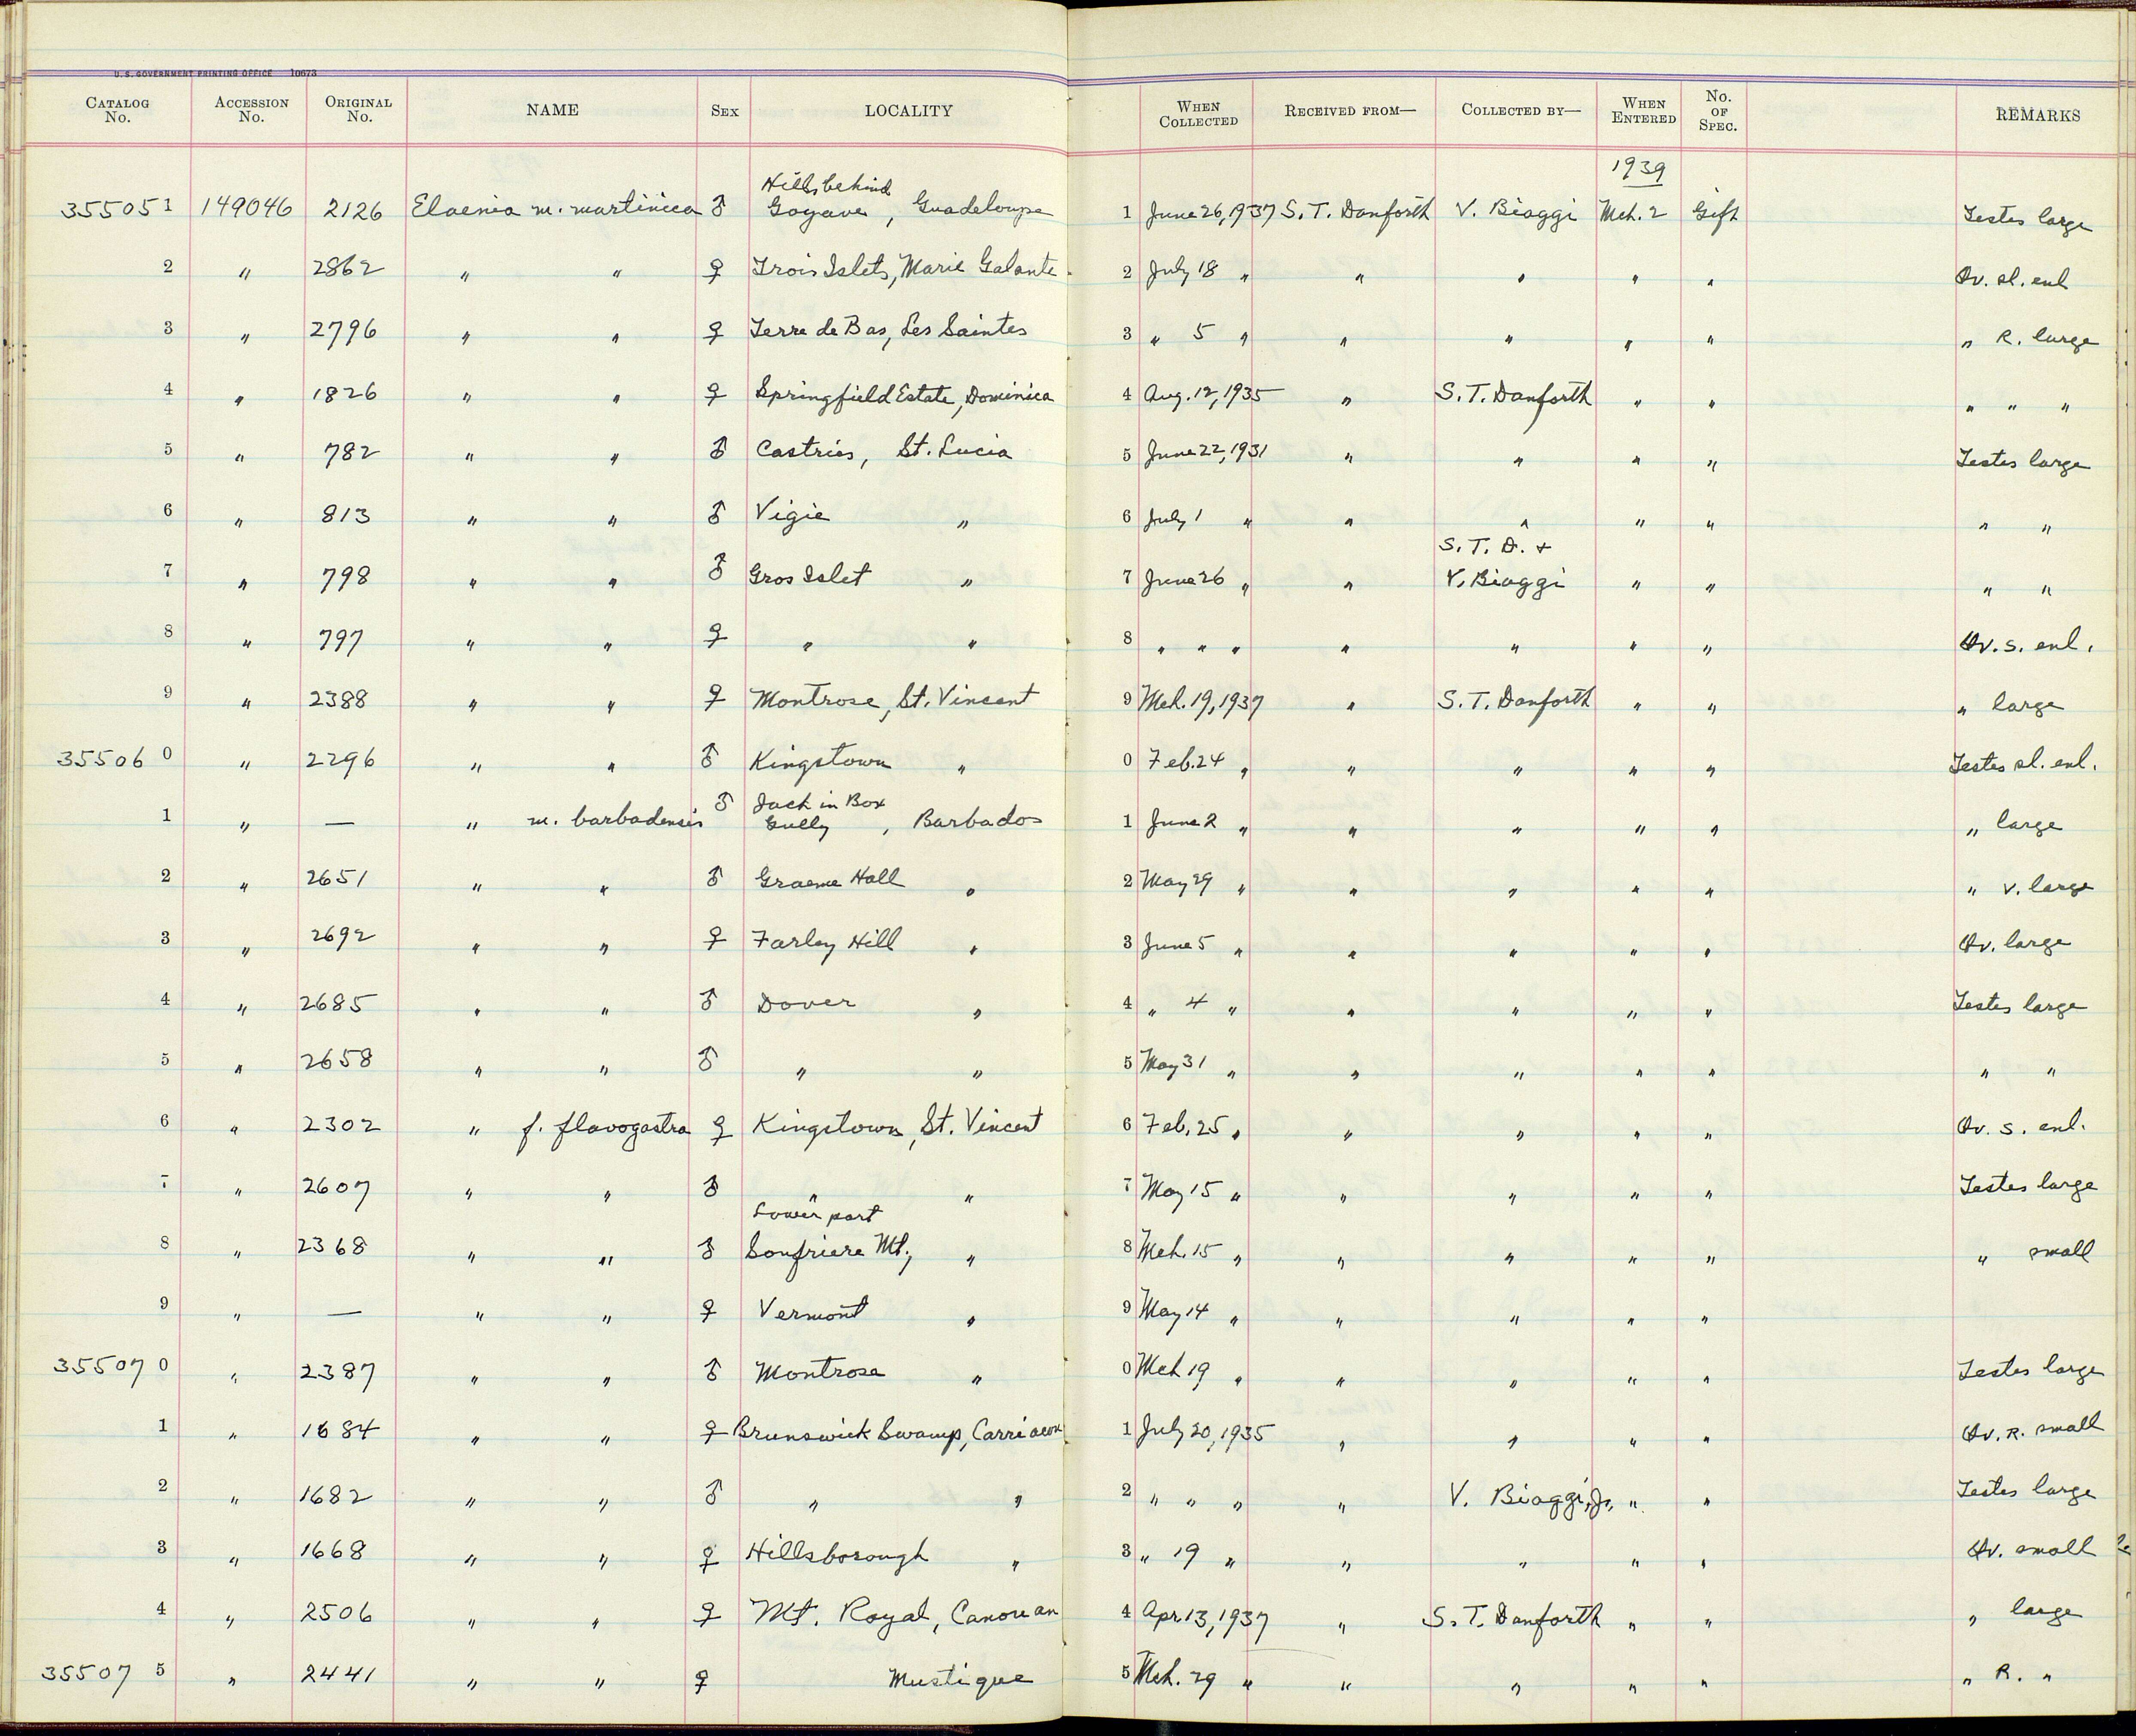 U. S. GOVERNMENT PRINTING OFFICE 10673
CATALOG No. ACCESSION No. ORIGINAL No. NAME SEX LOCALITY WHEN COLLECTED RECEIVED FROM— COLLECTED BY— WHEN ENTERED No. OF SPEC. REMARKS
1939
355051 149046 2126 Elaenia m. martinica ♂ Hills behind Goyave, Guadeloupe 1 June 26, 1937 S. T. Danforth V. Biaggi Mch. 2 Gift Testes large
2 " 2862 " " ♀ Trois Islets, Marie Galante 2 July 18 " " " " " Ov. sl. enl
3 " 2796 " " ♀ Terre de Bas, Les Saintes 3 " 5 " " " " " " R. large
4 " 1826 " " ♀ Springfield Estate, Dominica 4 Aug. 12, 1935 " S. T. Danforth " " " " "
5 " 782 " " ♂ Castries, St. Lucia 5 June 22, 1931 " " " " Testes large
6 " 813 " " ♂ Vigie " 6 July 1 " " " " " " "
7 " 798 " " ♂ Gros Islet " 7 June 26 " " S. T. D. + V. Biaggi " " " "
8 " 797 " " ♀ " " 8 " " " " " " " Ov. s. enl.
9 " 2388 " " ♀ Montrose, St. Vincent 9 Mch. 19, 1937 " S. T. Danforth " " " large
355060 " 2296 " " ♂ Kingstown " 0 Feb. 24 " " " " " Testes sl. enl.
1 " — " m. barbadensis ♂ Jack in Box Gully, Barbados 1 June 2 " " " " " " large
2 " 2651 " " ♂ Graeme Hall " 2 May 29 " " " " " " v. large
3 " 2692 " " ♀ Farley Hill " 3 June 5 " " " " " Ov. large
4 " 2685 " " ♂ Dover " 4 " 4 " " " " " Testes large
5 " 2658 " " ♂ " " 5 May 31 " " " " " " "
6 " 2302 " f. flavogastra ♀ Kingstown, St. Vincent 6 Feb. 25 " " " " " Ov. s. enl.
7 " 2607 " " ♂ " " 7 May 15 " " " " " Testes large
8 " 2368 " " ♂ Lower part Soufriere Mt., " 8 Mch. 15 " " " " " " small
9 " — " " ♀ Vermont " 9 May 14 " " " " "
355070 " 2387 " " ♂ Montrose " 0 Mch 19 " " " " " Testes large
1 " 1684 " " ♀ Brunswick Swamp, Carriacou 1 July 20, 1935 " " " " Ov. R. small
2 " 1682 " " ♂ " " 2 " " " " V. Biaggi, Jr. " " Testes large
3 " 1668 " " ♀ Hillsborough " 3 " 19 " " " " " Ov. small
4 " 2506 " " ♀ Mt. Royal, Canouan 4 Apr. 13, 1937 " S. T. Danforth " " " large
355075 " 2441 " " ♀ Mustique 5 Mch. 29 " " " " " " R. "